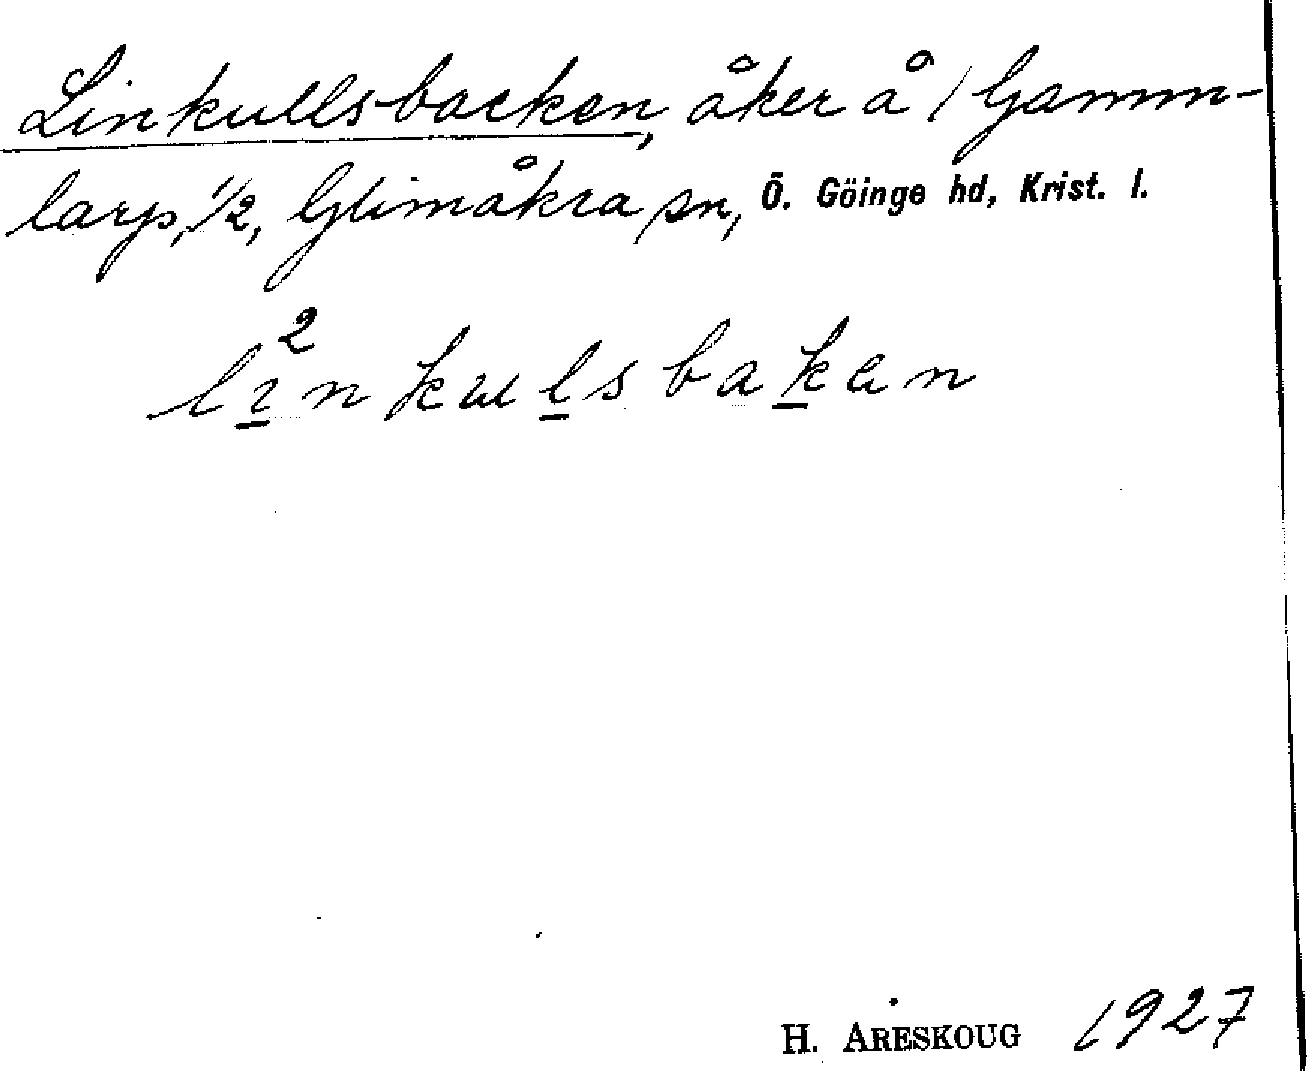 Linkullsbacken, åker å Gamm-
larp, 1/2, Glimåkra sn, Ö. Göinge hd, Krist. l.
2
linkulsbakan
H. ARESKOUG 1927